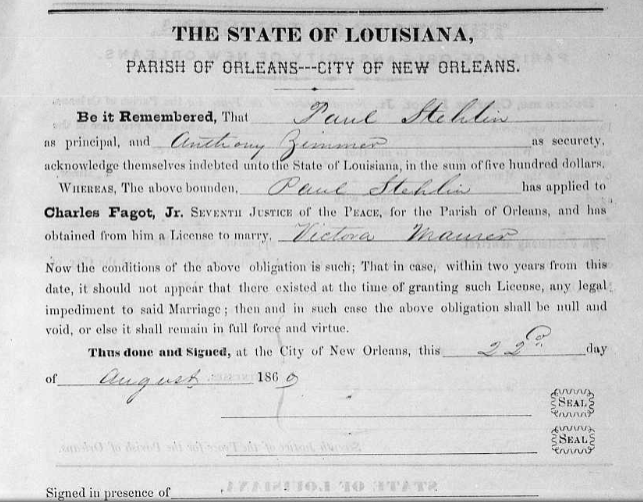 THE STATE OF LOUISIANA,
PARISH OF ORLEANS---CITY OF NEW ORLEANS.
Be it Remembered, That Paul Stehlin
as principal, and Anthony Zimmer as securety,
acknowledge themselves indebted unto the State of Louisiana, in the sum of five hundred dollars.
WHEREAS, The above bounden, Paul Stehlin has applied to
Charles Fagot, Jr. SEVENTH JUSTICE of the PEACE, for the Parish of Orleans, and has
obtained from him a License to marry, Victora Maurer
Now the conditions of the above obligation is such; That in case, within two years from this
date, it should not appear that there existed at the time of granting such License, any legal
impediment to said Marriage; then and in such case the above obligation shall be null and
void, or else it shall remain in full force and virtue.
Thus done and Signed, at the City of New Orleans, this 22d day
of August 1860
SEAL
SEAL
Signed in presence of